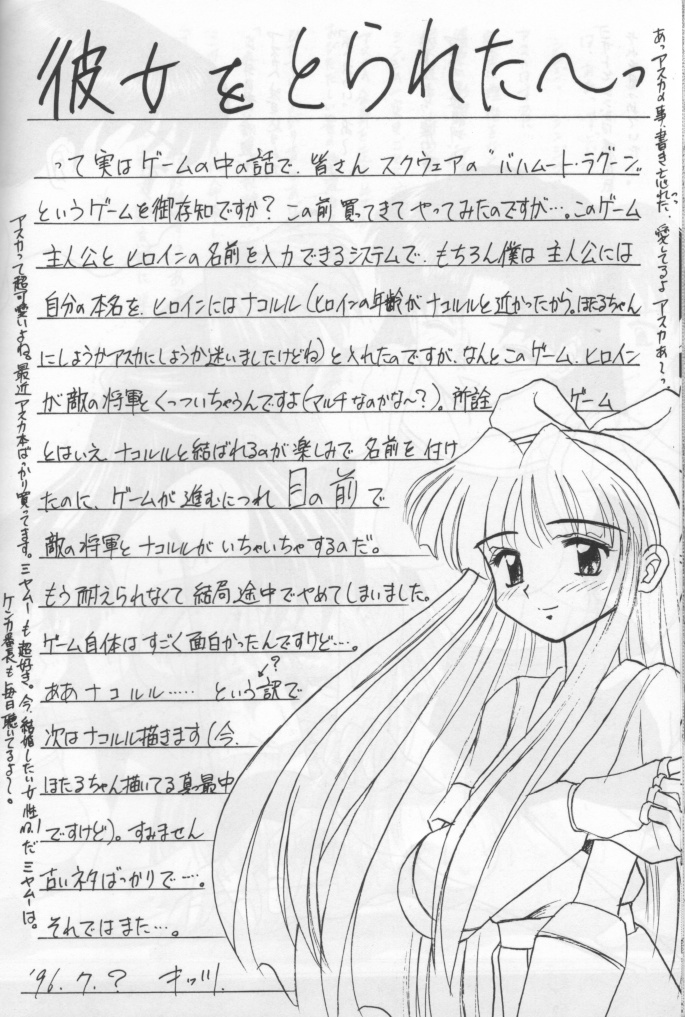 彼女をとられた〜っ
って実はゲームの中の話で、皆さん スクウェアの“バハムート・ラグーン”
というゲームを御存知ですか？ この前 買ってきて やってみたのですが…。このゲーム
主人公と ヒロインの名前を入力できるシステムで、もちろん僕は 主人公には
自分の本名を、ヒロインにはナコルル（ヒロインの年齢が ナコルルと近かったから。ほたるちゃん
にしようかアスカにしようか迷いましたけどね）と入れたのですが、なんとこのゲーム、ヒロイン
が敵の将軍とくっついちゃうんですよ（マルチなのかな〜？）。所詮 ゲーム
とはいえ、ナコルルと結ばれるのが楽しみで 名前を 付け
たのに、ゲームが 進むにつれ 目の前で
敵の将軍とナコルルが いちゃいちゃするのだ。
もう耐えられなくて 結局途中でやめてしまいました。
ゲーム自体は すごく面白かったんですけど…。
ああ ナコルル…… という訳で
？
次はナコルル描きます（今、
ほたるちゃん描いてる真っ最中
ですけど）。すみません
古いネタばっかりで…。
それではまた…。
'96.7.？ キッツ。
あっアスカの事、書き忘れた、愛してるよ アスカぁ〜っ
アスカって超可愛いよね。最近アスカ本ばっかり買ってます。ミヤムーも超好き。今、結婚したい女性No.1だ ミヤムーは。
ケンカ番長も毎日聴いてるよ〜。